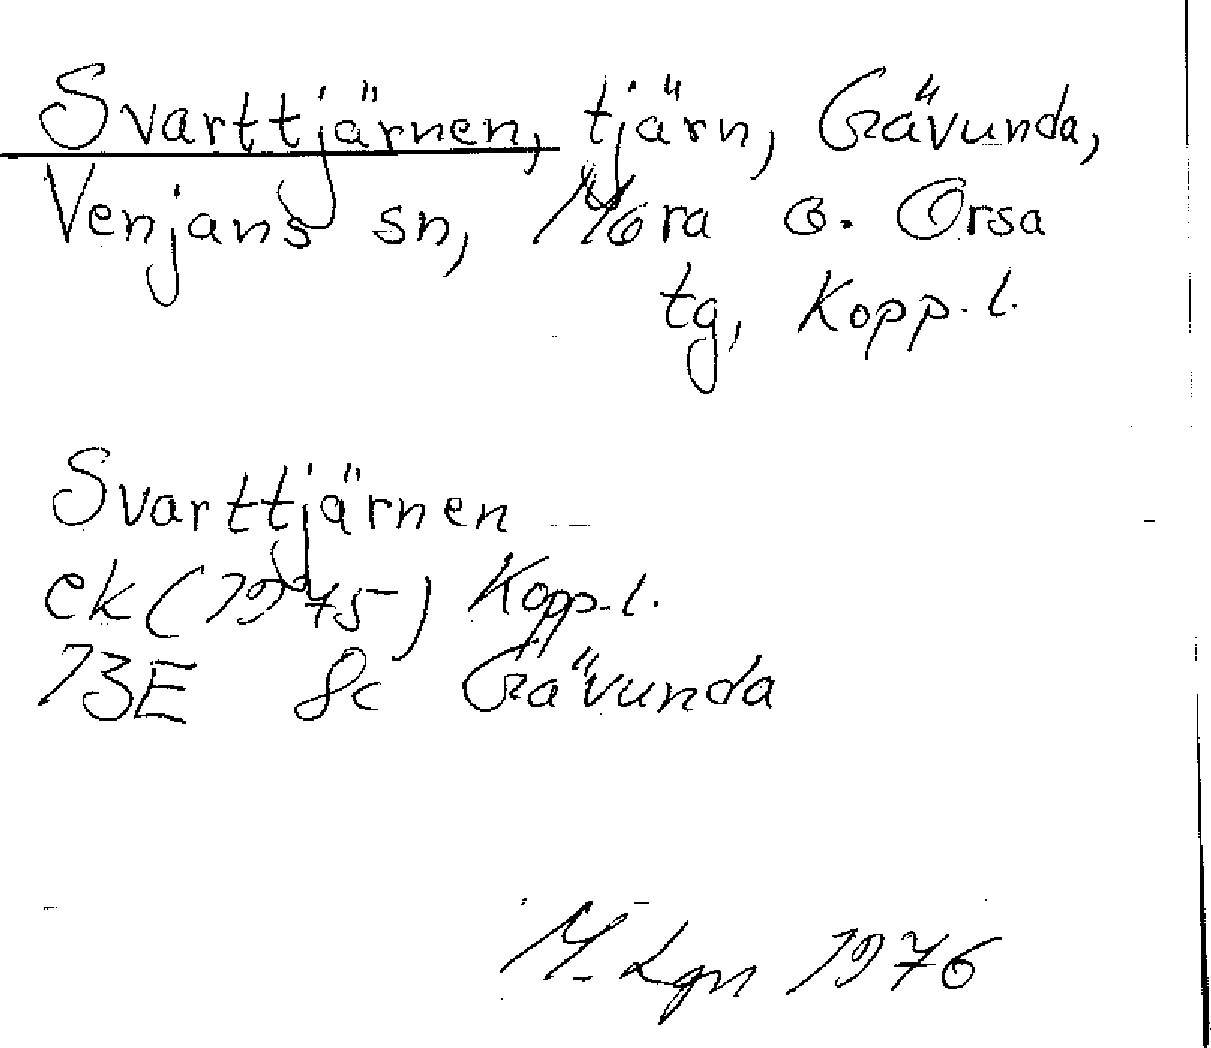 Svarttjärnen, tjärn, Grävunda,
Venjans sn, Mora o. Orsa
tg, Kopp. l.
Svarttjärnen
ek (1975) Kopp. l.
13E 8c Grävunda
M. Lgn 1976